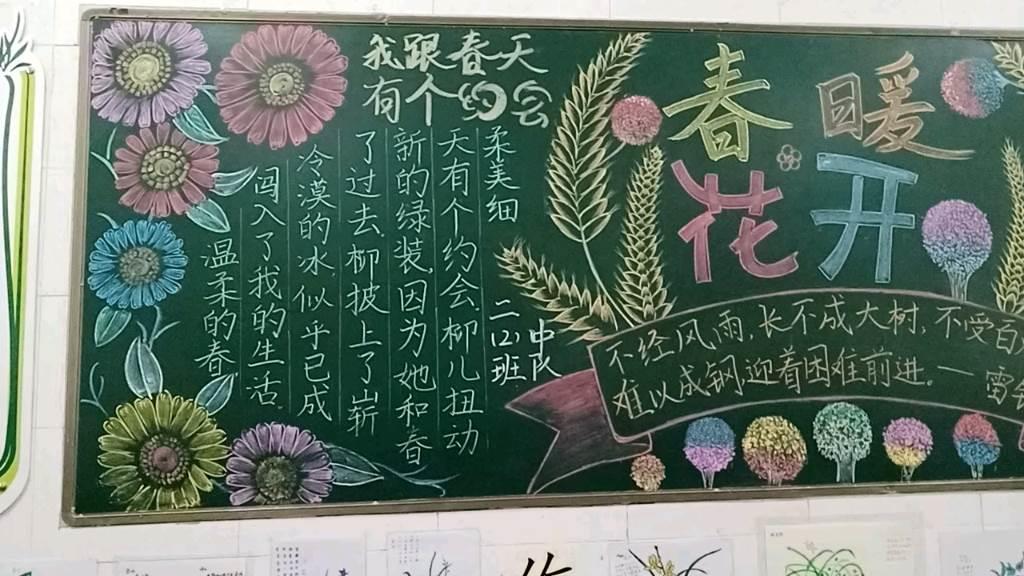 我跟春天
有个约会
温柔的春
闯入了我的生活。
冷漠的冰似乎已成
了过去,柳披上了崭
新的绿装,因为她和春
天有个约会柳儿扭动
柔美细
二(2)班
中队
春暖
花开
不经风雨,长不成大树,不受百
难以成钢,迎着困难前进。一雷